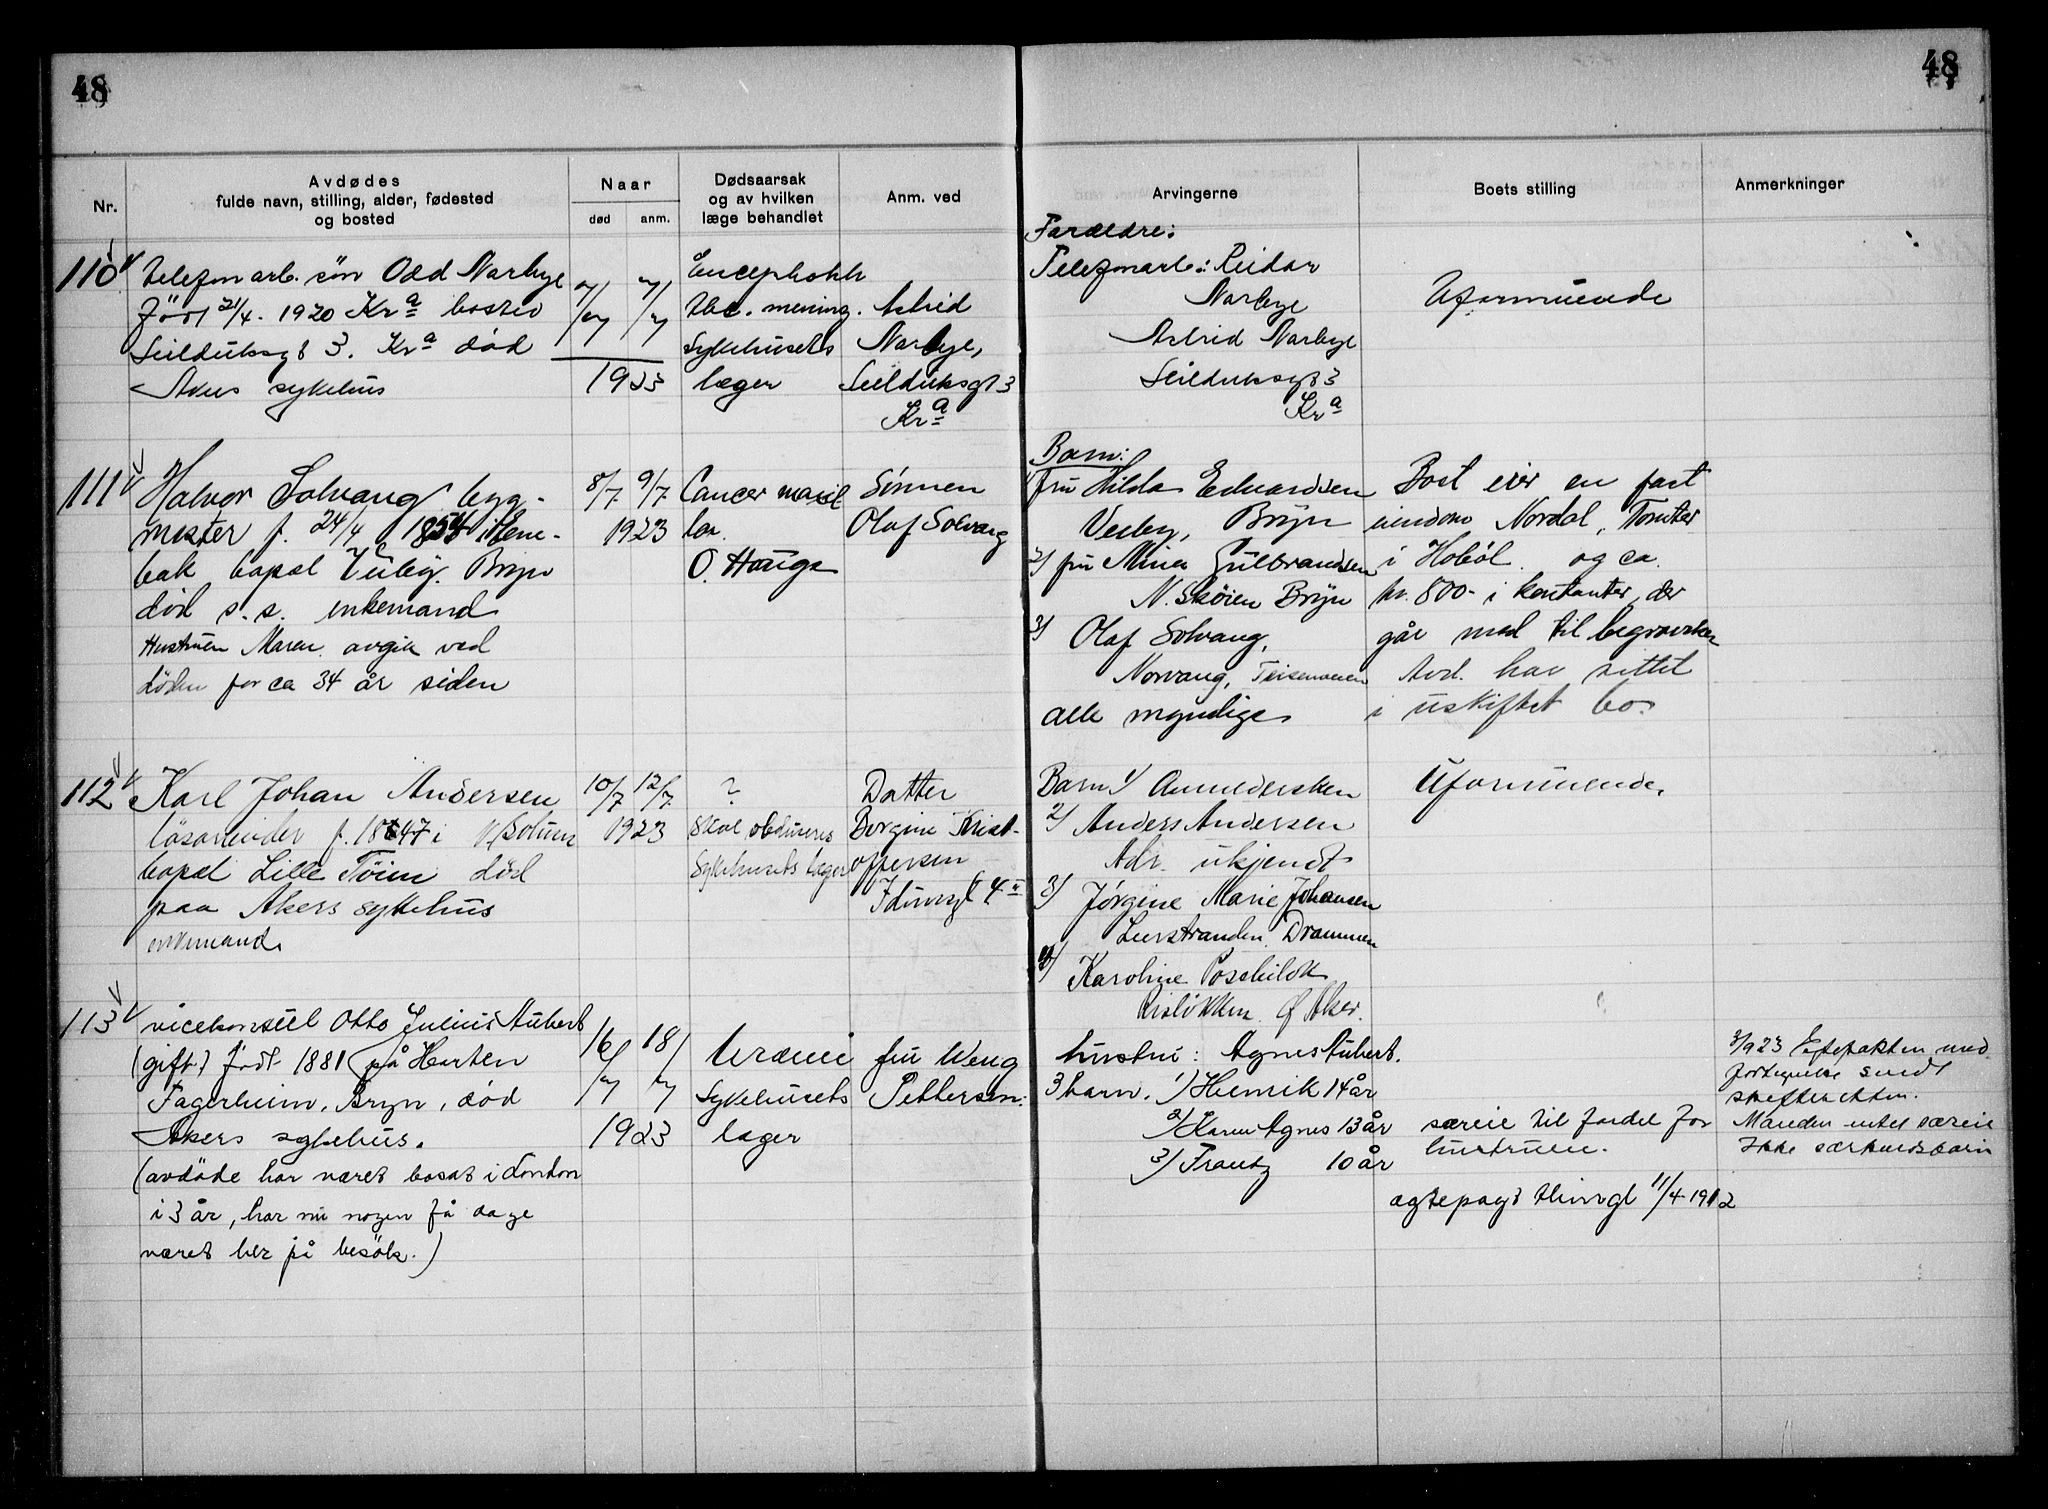 48
48
Nr.
Avdødes
fulde navn, stilling, alder, fødested
og bosted
Naar
død anm.
Dødsaarsak
og av hvilken
læge behandlet
Anm. ved
Arvingerne
Boets stilling
Anmerkninger
110
telefonarb. søn Odd Narbye
Født 21/4. 1920 Kra bosted
Seilduksgt 3. Kra død
Akers sykehus
7/7 7/7
1923
Encephalit
tbc. mening.
Sykehusets
læger
Astrid
Narbye,
Seilduksgt 3
Kra
Forældre:
Telefonarb.: Reidar
Narbye
Astrid Narbye
Seilduksgt 3
Kra
Uformuende
111
Halvor Solvang byg-
mester f. 24/4 1854 i Ene-
bak bopæl Veiby. Bryn
død s. s. enkemand
Hustruen Maren avgik ved
døden for ca 34 år siden
8/7 9/7
1923
Cancer maxil
lar.
O. Hauge
Sønnen
Olaf Solvang
Barn:
fru Hilda Edvardsen
Veiby, Bryn
2) fru Mina Gulbrandsen
N. Skøien Bryn
3) Olaf Solvang,
Norvang, Teisenveien
alle myndige
Boet eier en fast
eiendom Nordal, Tomter
i Hobøl. og ca.
kr. 800- i kontanter, der
går med til begravelsen
Avd. har sittet
i uskiftet bo.
112
Karl Johan Andersen
løsarbeider f. 1847 i
bopæl Lille Tøien død
paa Akers sykehus
enkemand.
10/7 12/7
1923
?
Skal obduceres
Sykehusets læger
Datter
Bergine Krist-
offersen
Idunsgt 4 II
Barn 1) Anmeldersken
2) Anders Andersen
Adr. ukjendt
3) Jørgine Marie Johansen
Lierstranden. Drammen
4) Karoline
Risløkken. Ø. Aker.
Uformuende.
113
vicekonsul Otto Julius Aubert
(gift.) født 1881 på Horten
Fagerheim, Bryn, død
Akers sykehus.
(avdøde har været bosat i London
i 3 år, har nu nogen få dage
været her på besøk.)
16/7 18/7
1923
Uræmi
Sykehusets
læger
fru Weng
Pettersen.
hustru: Agnes Aubert.
3 barn. 1) Henrik 14 år
2) Karen Agnes 13 år
3) Frantz 10 år
særeie til fordel for
hustruen.
ægtepagt tinngl 11/4 1912
3/923 Egtepakten med
fortegnelse sendt
skifteretten.
Manden intet særeie
Ikke særkuldsbarn